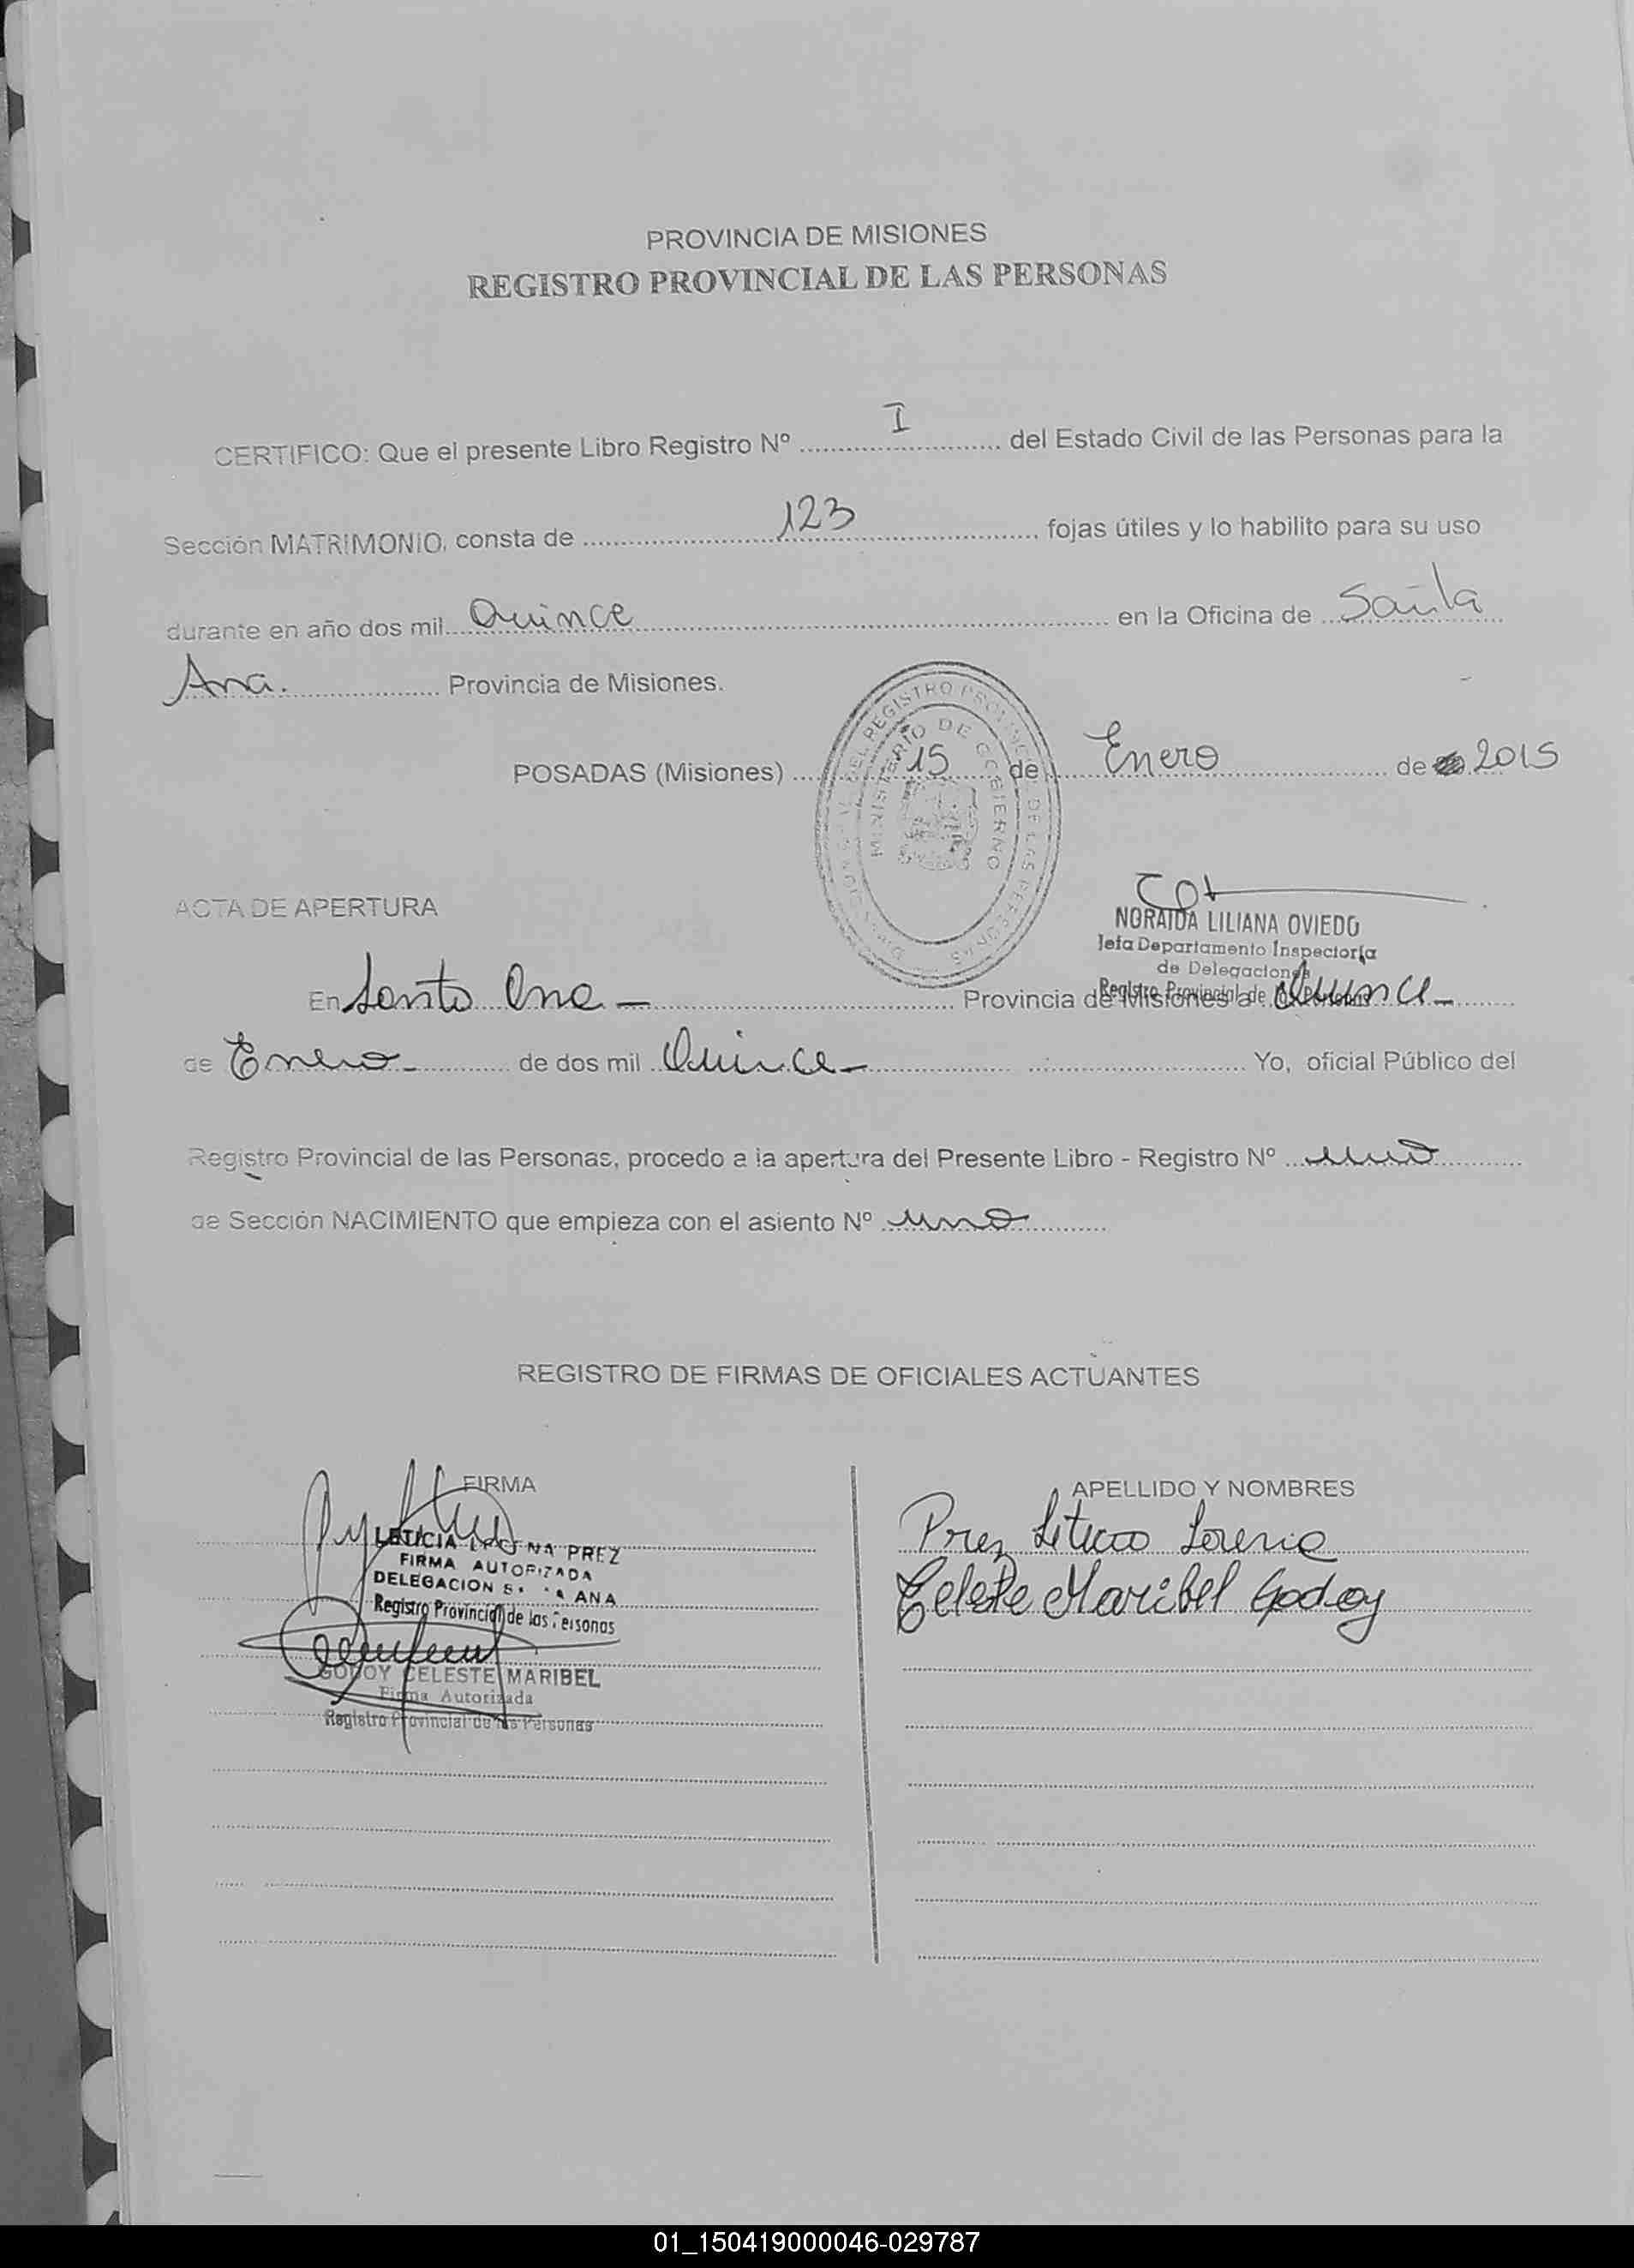 PROVINCIA DE MISIONES
REGISTRO PROVINCIAL DE LAS PERSONAS
CERTIFICO: Que el presente Libro Registro Nº I del Estado Civil de las Personas para la
Sección MATRIMONIO, consta de 123 fojas útiles y lo habilito para su uso
durante en año dos mil Quince en la Oficina de Santa
Ana. Provincia de Misiones.
POSADAS (Misiones) 15 de Enero de 2015
REGISTRO PROVINCIAL DE LAS PERSONAS
MINISTERIO DE GOBIERNO
NORAIDA LILIANA OVIEDO
Jefa Departamento Inspectoría
de Delegaciones
Registro Provincial de las Personas
ACTA DE APERTURA
En Santa Ana - Provincia de Misiones a Quince -
de Enero - de dos mil Quince - Yo, oficial Público del
Registro Provincial de las Personas, procedo a la apertura del Presente Libro - Registro Nº uno
de Sección NACIMIENTO que empieza con el asiento Nº uno
REGISTRO DE FIRMAS DE OFICIALES ACTUANTES
FIRMA
LETICIA LORENA PREZ
FIRMA AUTORIZADA
DELEGACION SANTA ANA
Registro Provincial de las Personas
GODOY CELESTE MARIBEL
Firma Autorizada
Registro Provincial de las Personas
APELLIDO Y NOMBRES
Prez Leticia Lorena
Celeste Maribel Godoy
01_150419000046-029787